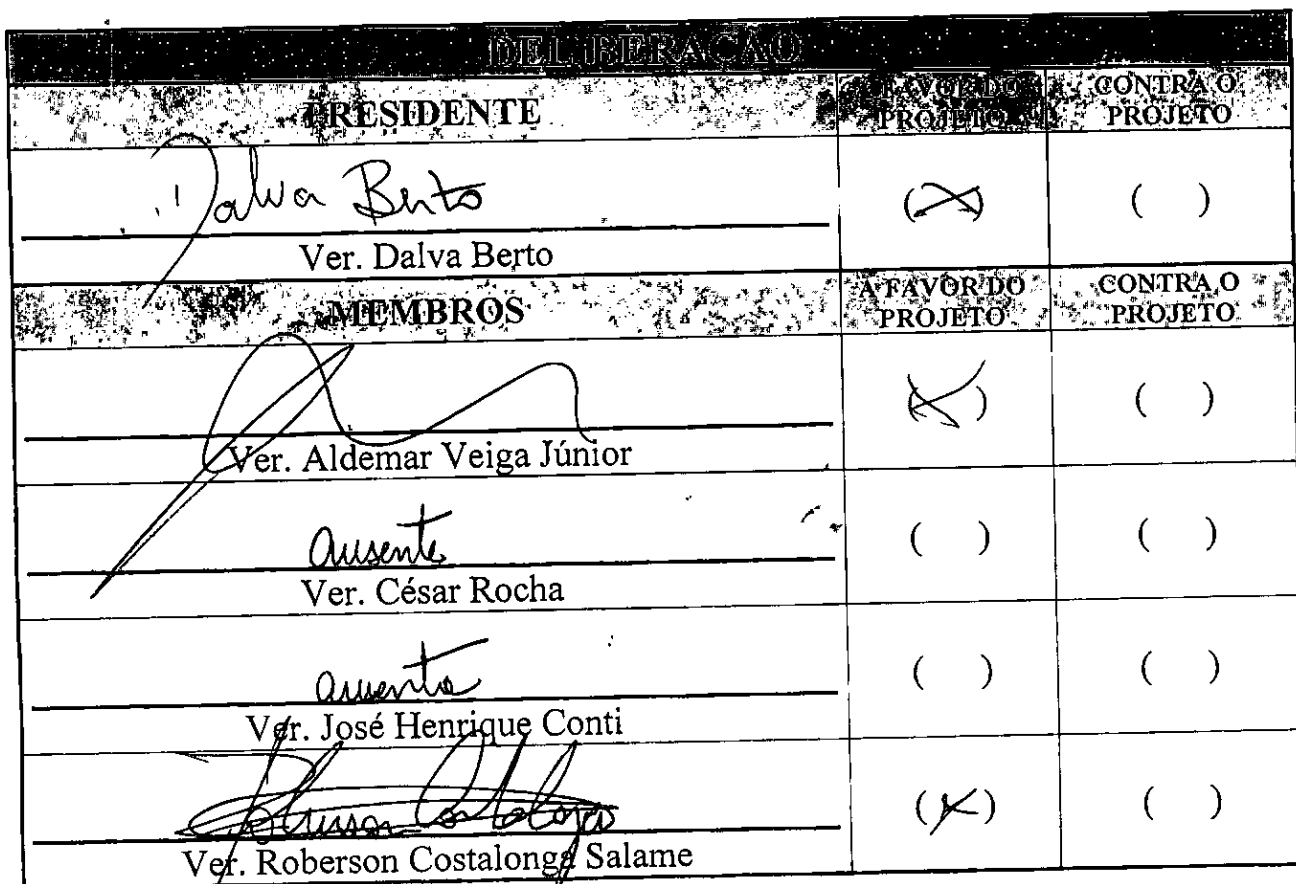 DELIBERAÇÃO
PRESIDENTE A FAVOR DO PROJETO CONTRA O PROJETO
Dalva Berto (X) ( )
Ver. Dalva Berto
MEMBROS A FAVOR DO PROJETO CONTRA O PROJETO
(X) ( )
Ver. Aldemar Veiga Júnior
ausente ( ) ( )
Ver. César Rocha
ausente ( ) ( )
Ver. José Henrique Conti
(X) ( )
Ver. Roberson Costalonga Salame